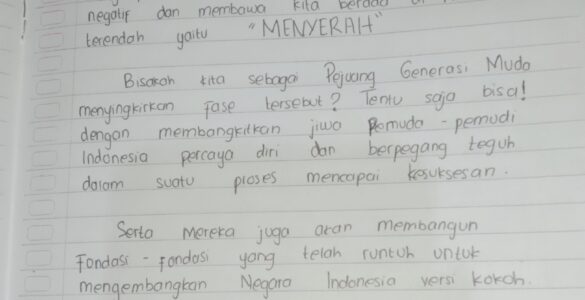 negatif dan membawa kita berada
terendah yaitu "MENYERAH"
Bisakah kita sebagai Pejuang Generasi Muda
menyingkirkan fase tersebut? Tentu saja bisa!
dengan membangkitkan jiwa Pemuda - pemudi
Indonesia percaya diri dan berpegang teguh
dalam suatu proses mencapai kesuksesan.
Serta Mereka juga akan membangun
Fondasi - fondasi yang telah runtuh untuk
mengembangkan Negara Indonesia versi kokoh.